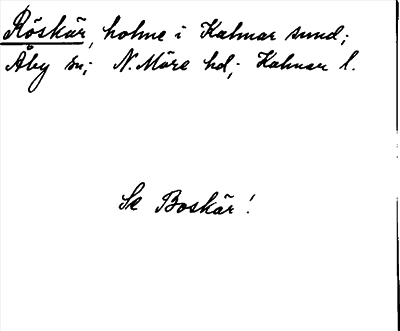 Röskär, holme i Kalmar sund;
Åby sn; N. Möre hd; Kalmar l.
Se Boskär!